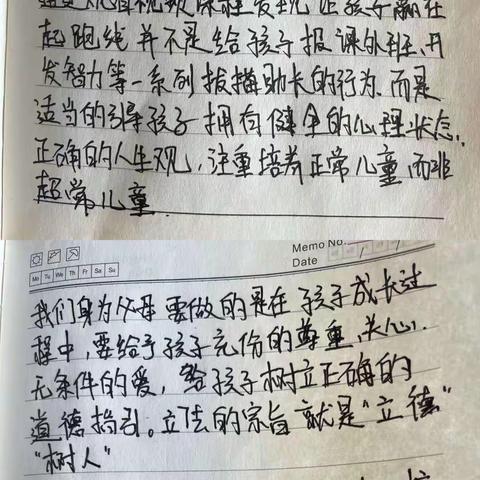 观看视频课程发现让孩子赢在
起跑线并不是给孩子报课外班、开
发智力等一系列拔揠助长的行为.而是
适当的引导孩子拥有健全的心理状态,
正确的人生观,注重培养正常儿童,而非
超常儿童.
Memo No.
Date / /
Mo Tu We Th Fr Sa Su
我们身为父母要做的是在孩子成长过
程中,要给予孩子充份的尊重,关心,
无条件的爱,给孩子树立正确的
道德指引。立法的宗旨就是“立德”
“树人”